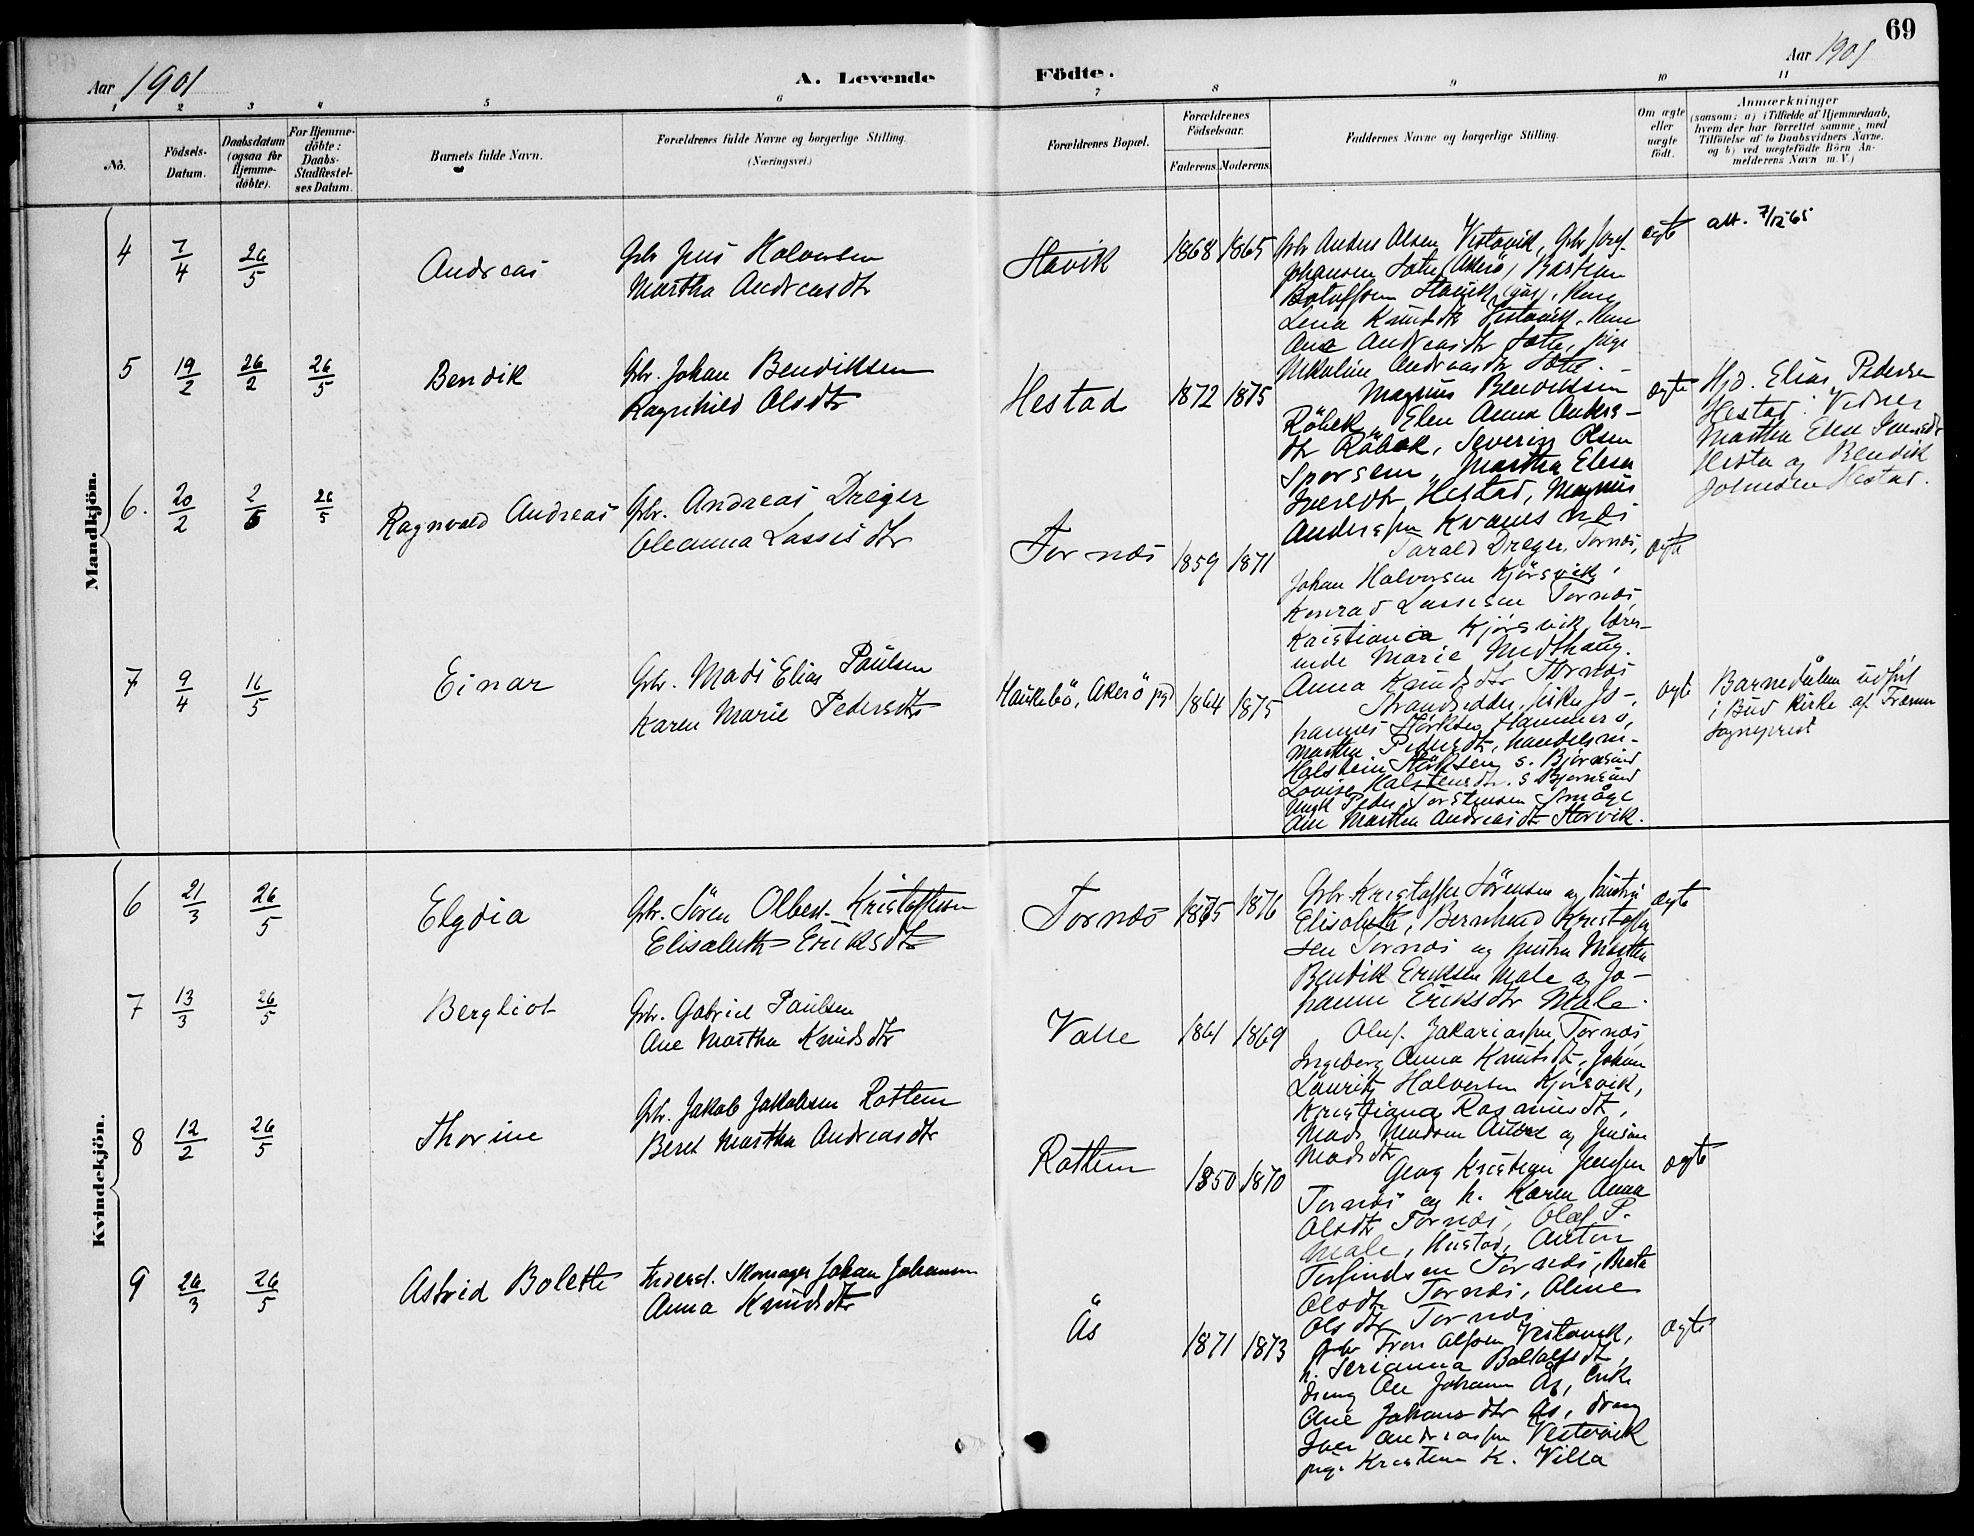 69
Aar 1901
A. Levende Födte.
Aar 1901
1 2 3 4 5 6 7 8 9 10 11
No.
Födsels-Datum.
Daabsdatum (ogsaa for Hjemme-döbte).
For Hjemme-döbte: Daabs-Stadfæstel-ses Datum.
Barnets fulde Navn.
Forældrenes fulde Navne og borgerlige Stilling.
(Næringsvei.)
Forældrenes Bopæl.
Forældrenes Födselsaar.
Faderens. Moderens.
Faddernes Navne og borgerlige Stilling.
Om ægte eller uægte født.
Anmærkninger
(saasom: a) i Tilfælde af Hjemmedaab,
hvem der har forrettet samme, med
Tilföielse af to Daabsvidners Navne.
og b) ved uægtefödte Börn An-
melderens Navn m. V.)
Mandkjön.
4 7/4 26/5
Andreas
Gbr Jens Halvorsen
Martha Andreasdtr
Stavik
1868 1865
Gbr Anders Olsen Vestavik, Gbr
Johansen Sætre (Akerö) Bastian
Lena Knudsdtr Vestavik
Ane Andreasdtr Sætre, pige
Nikoline Andreasdtr Sætre.
ægte
att. 7/12 65
5 19/2 26/2 26/5
Bendik
Gbr. Johan Bendiksen
Ragnhild Olsdtr
Hestad
1872 1875
Magnus Bendiksen
Röbek, Elen Anna Anders-
dtr Röbek, Severin Olsen
Sporsem, Martha Elen
Iversdtr Hestad, Magnus
Anderssen Kvamsnæs
ægte
Hjd. Elias Pedersen
Hestad. Vidner
Martha Elen Iversdtr
Hestad og Bendik
Johnsen Hestad.
6. 20/2 2/6 26/5
Ragnvald Andreas
Gbr. Andreas Dreyer
Oleanna Lassesdtr
Tornæs
1859 1871
Tarald Dreyer, Tornæs,
Johan Halvorsen Kjörsvik,
Konrad Lassesen Tornæs,
Kristiania Kjörsvik, lærer-
inde Marie Midthaug.
Anna Knudsdtr Tornæs
ægte
7 9/4 16/5
Einar
Gbr. Mads Elias Paulsen
Karen Marie Pedersdtr
Haukebö, Akerö pgd
1864 1875
Strandsidder, fisker Jo-
hannes Hammerö,
Martha Pedersdtr, handelsm-
Halstein s. Björnsund
Louise Halstensdtr. s Björnsund
Ungk Peder Torstensen Småge
Ane Martha Andreasdtr Storvik.
ægte
Barnedåben udført
i Bud kirke af Fræmr
sogneprest
Kvindekjön.
6 21/3 26/5
Elydia
Gbr. Sören Olbert. Kristoffersen
Elisabeth Eriksdtr
Tornæs
1875 1876
Gbr. Kristoffer Sörensen og hustru
Elisabeth, Bernhard Kristoffer
sen Tornæs og hustru Martha
Bendik Eriksen Male og Jo-
hanne Eriksdtr Male.
ægte
7 13/3 26/5
Bergliot
Gbr. Gabriel Paulsen
Ane Martha Knudsdtr
Valle
1861 1869
Oluf Zakariassen Tornæs,
Ingeborg Anna Knutsdtr, Johan
Lauritz Halvorsen Kjörsvik,
Kristiana Rasmusdt,
Mads Madsen og
Madsdtr
8 12/2 26/5
Thorine
Gbr. Jakob Jakobsen Rottem
Beret Martha Andreasdtr
Rottem
1850 1870
Georg Kristian Jensen
Tornæs og h. Karen Anna
Olsdtr Tornæs, Olaf P.
Male, Hustad, Anton
Torfindsen Tornæs, Berte
Olsdtr Tornæs, Oline
Olsdtr Tornæs
ægte
9 26/3 26/5
Astrid Bolette
Inderst. Skomager Johan Johansen
Anna Knudsdtr
Ås
1871 1873
Gbr Iver Vestavik,
h. Serianna
dreng Ole Johansen Ås, enke
Ane Johansdtr Ås, dreng
Iver Andreassen Vestavik
pige Kristine K. Villa
ægte